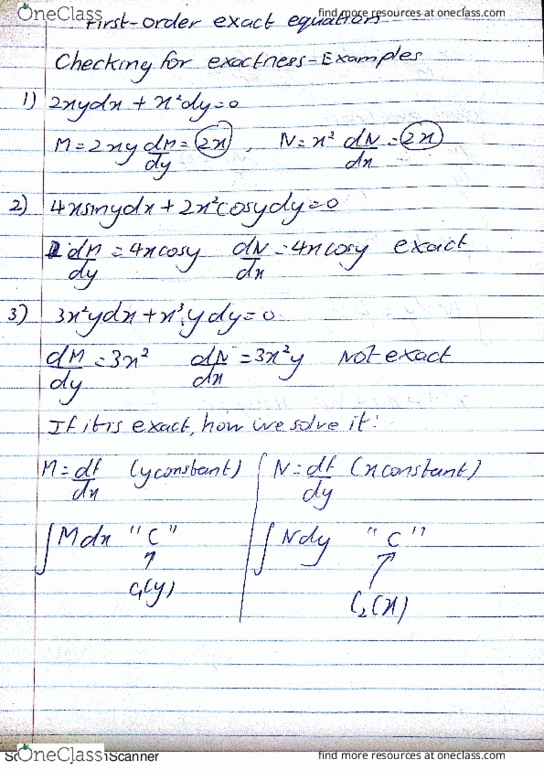 OneClass find more resources at oneclass.com
First-order exact equations
Checking for exactness - Examples
1) 2xydx + x²dy = 0
M = 2xy dM/dy = 2x, N = x² dN/dx = 2x
2) 4xsinydx + 2x²cosydy = 0
dM/dy = 4xcosy dN/dx = 4xcosy exact
3) 3x²ydx + x³ydy = 0
dM/dy = 3x² dN/dx = 3x²y Not exact
If it is exact, how we solve it:
M = df/dx (y constant) N = df/dy (x constant)
∫Mdx "C" ∫Ndy "C"
C₁(y) C₂(x)
OneClass Scanner find more resources at oneclass.com